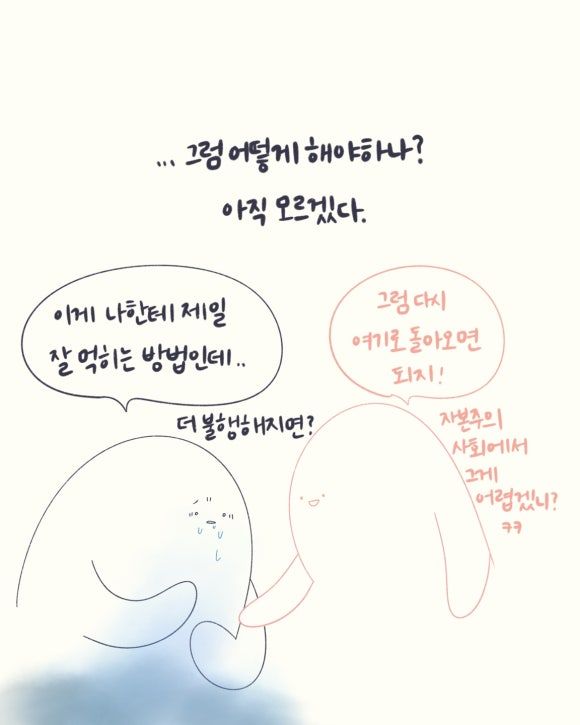 ... 그럼 어떻게 해야하나?
아직 모르겠다.
이게 나한테 제일
잘 먹히는 방법인데..
더 불행해지면?
그럼 다시
여기로 돌아오면
되지!
자본주의
사회에서
그게
어렵겠니?
ㅋㅋ